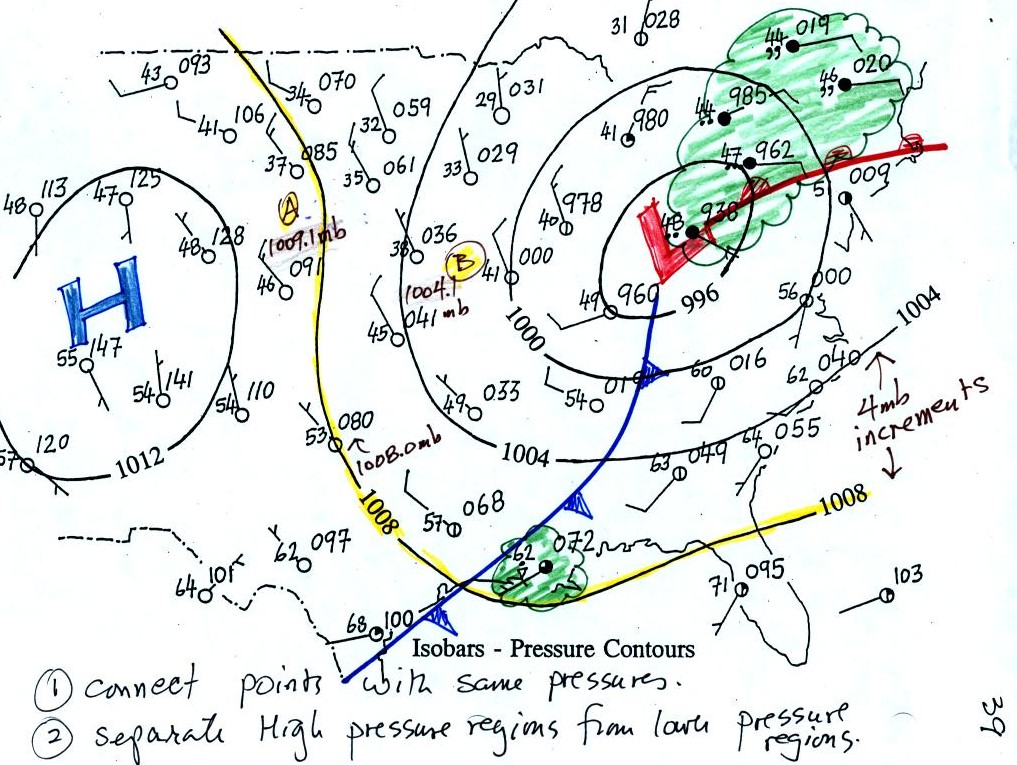 31 028
44 019
46 020
43 093
34 070
29 031
44 985
32 059
41 106
41 980
37 085
35 061
33 029
47 962
48 113
47 125
009
A
1009.1mb
48 128
46 091
40 978
38 036
B
41 000
48 938
L
H
1004.1 mb
45 041
49 960
996
56 000
1000
1004
55 147
54 141
54 110
49 033
54
60 016
62 040
4mb
increments
57 120
1012
53 080
1008.0mb
1004
63 049
64 055
1008
57 068
1008
62 097
62 072
64 101
68 100
71 095
103
Isobars - Pressure Contours
1 connect points with same pressures.
2 separate High pressure regions from lower pressure
regions.
39